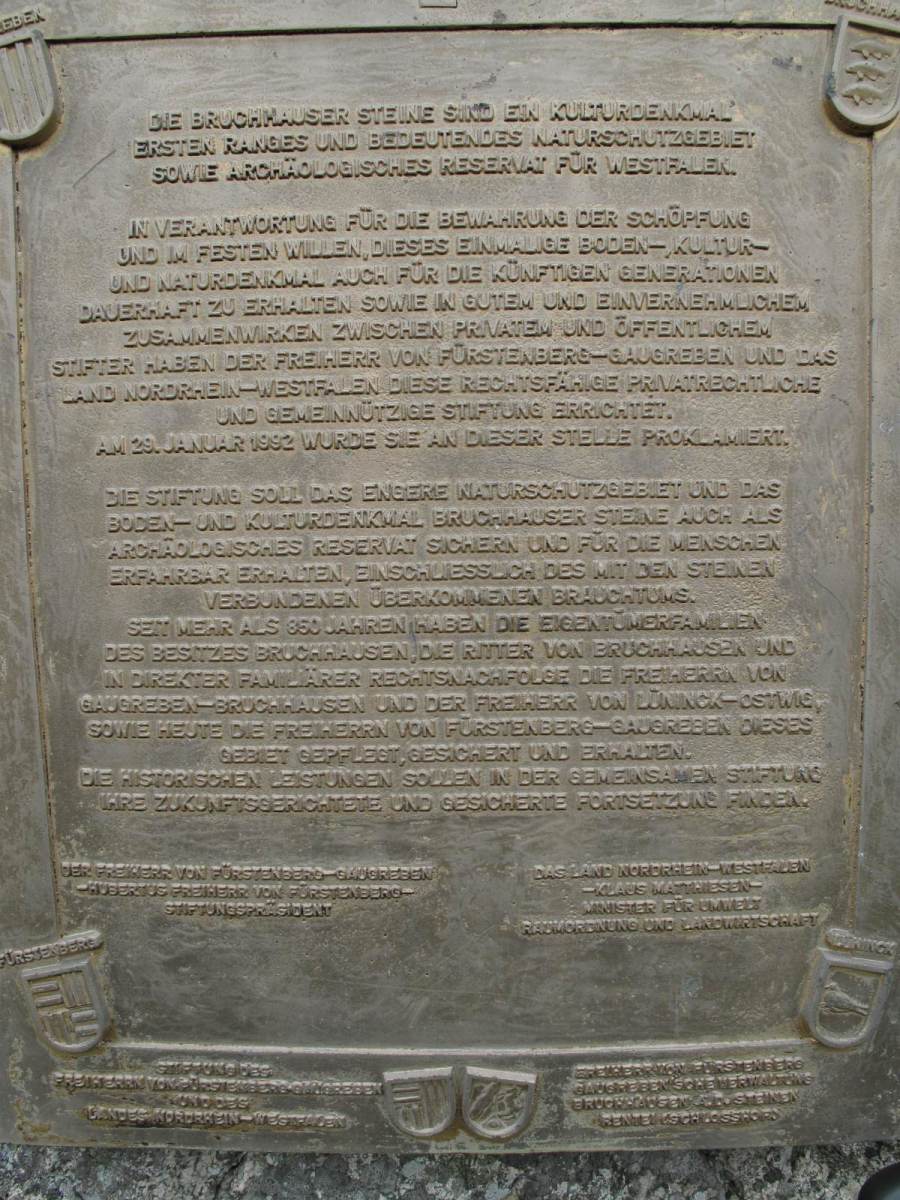 DIE BRUCHHAUSER STEINE SIND EIN KULTURDENKMAL
ERSTEN RANGES UND BEDEUTENDES NATURSCHUTZGEBIET
SOWIE ARCHÄOLOGISCHES RESERVAT FÜR WESTFALEN.
IN VERANTWORTUNG FÜR DIE BEWAHRUNG DER SCHÖPFUNG
UND IM FESTEN WILLEN, DIESES EINMALIGE BODEN-, KULTUR-
UND NATURDENKMAL AUCH FÜR DIE KÜNFTIGEN GENERATIONEN
DAUERHAFT ZU ERHALTEN SOWIE IN GUTEM UND EINVERNEHMLICHEM
ZUSAMMENWIRKEN ZWISCHEN PRIVATEM UND ÖFFENTLICHEM
STIFTER HABEN DER FREIHERR VON FÜRSTENBERG-GAUGREBEN UND DAS
LAND NORDRHEIN-WESTFALEN DIESE RECHTSFÄHIGE PRIVATRECHTLICHE
UND GEMEINNÜTZIGE STIFTUNG ERRICHTET.
AM 29. JANUAR 1992 WURDE SIE AN DIESER STELLE PROKLAMIERT.
DIE STIFTUNG SOLL DAS ENGERE NATURSCHUTZGEBIET UND DAS
BODEN- UND KULTURDENKMAL BRUCHHAUSER STEINE AUCH ALS
ARCHÄOLOGISCHES RESERVAT SICHERN UND FÜR DIE MENSCHEN
ERFAHRBAR ERHALTEN, EINSCHLIESSLICH DES MIT DEN STEINEN
VERBUNDENEN ÜBERKOMMENEN BRAUCHTUMS.
SEIT MEHR ALS 850 JAHREN HABEN DIE EIGENTÜMERFAMILIEN
DES BESITZES BRUCHHAUSEN, DIE RITTER VON BRUCHHAUSEN UND
IN DIREKTER FAMILIÄRER RECHTSNACHFOLGE DIE FREIHERRN VON
GAUGREBEN-BRUCHHAUSEN UND DER FREIHERR VON LÜNINCK-OSTWIG,
SOWIE HEUTE DIE FREIHERRN VON FÜRSTENBERG-GAUGREBEN DIESES
GEBIET GEPFLEGT, GESICHERT UND ERHALTEN.
DIE HISTORISCHEN LEISTUNGEN SOLLEN IN DER GEMEINSAMEN STIFTUNG
IHRE ZUKUNFTSGERICHTETE UND GESICHERTE FORTSETZUNG FINDEN.
DER FREIHERR VON FÜRSTENBERG-GAUGREBEN
-HUBERTUS FREIHERR VON FÜRSTENBERG-
STIFTUNGSPRÄSIDENT
DAS LAND NORDRHEIN-WESTFALEN
-KLAUS MATTHIESEN-
MINISTER FÜR UMWELT
RAUMORDNUNG UND LANDWIRTSCHAFT
FÜRSTENBERG
LÜNINCK
STIFTUNG DES
FREIHERRN VON FÜRSTENBERG-GAUGREBEN
UND DES
LANDES NORDRHEIN-WESTFALEN
FREIHERR VON FÜRSTENBERG
GAUGREBEN'SCHE VERWALTUNG
BRUCHHAUSEN A.D. STEINEN
RENTEI (SCHLOSSHOF)